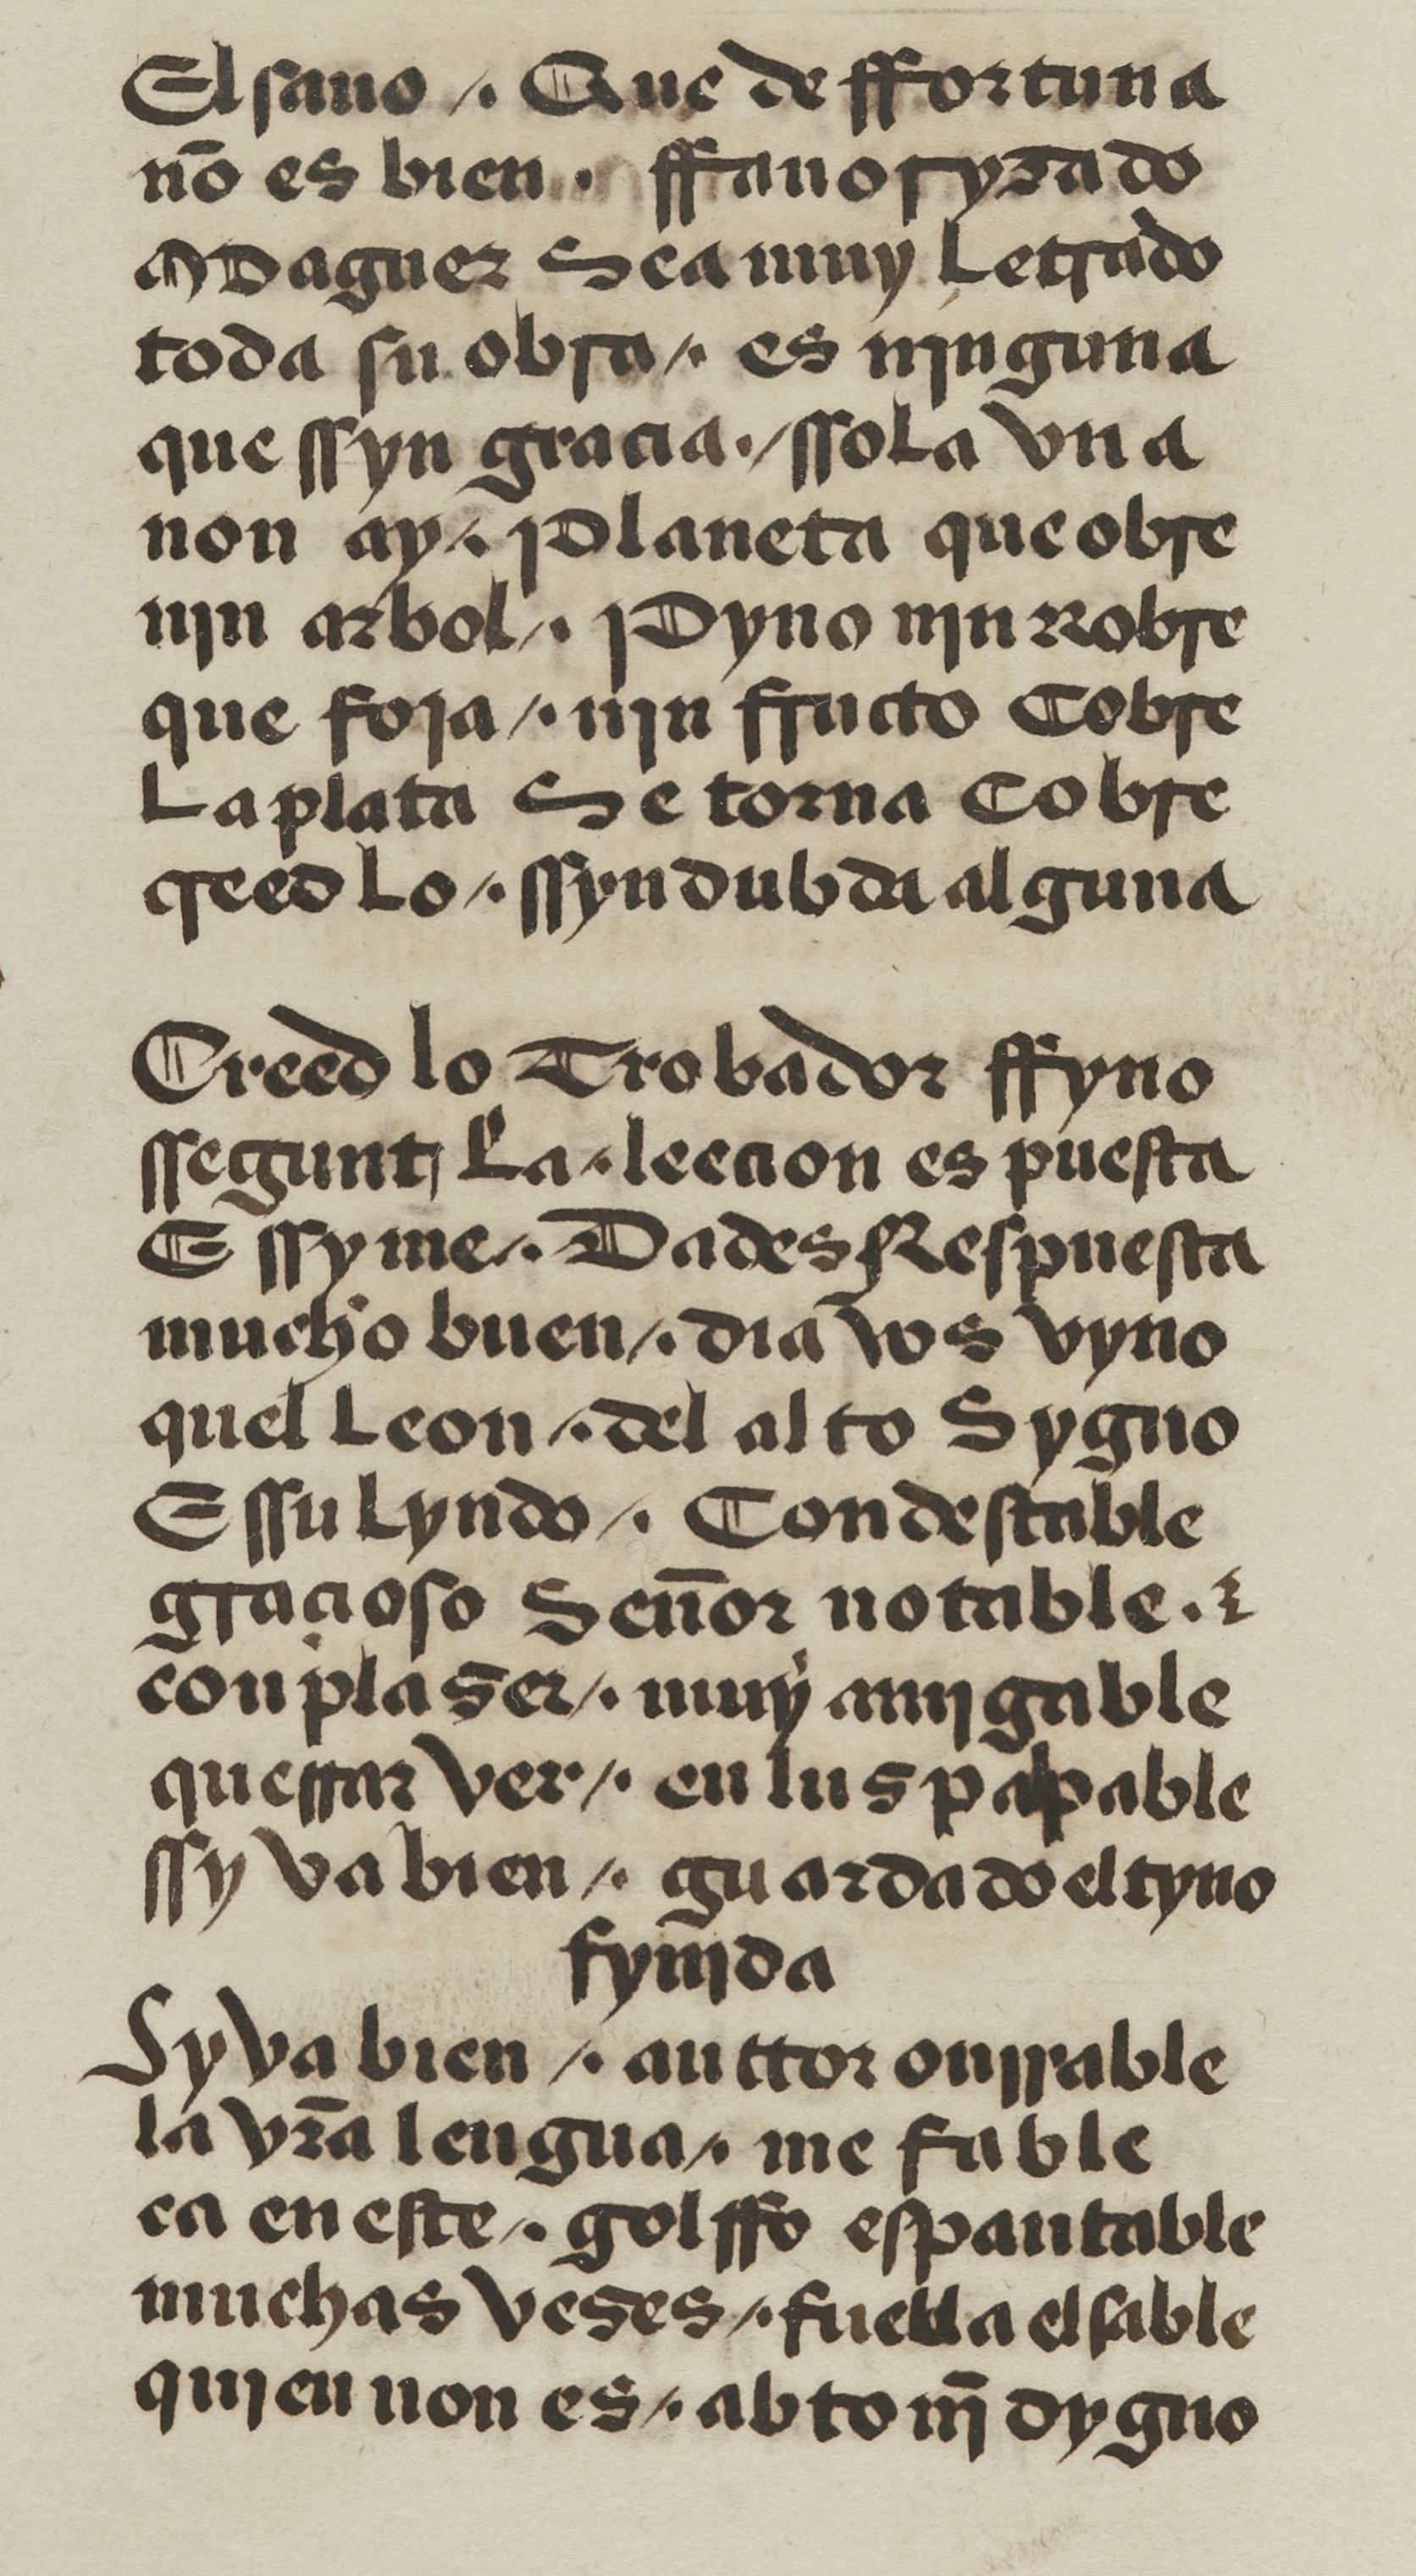 El sauo /. Que de ffortuna
nō es bien . ffauoryzado
Maguer Sea muy Letrado
toda su obra /. es njnguna
que ssyn gracia ./ ssola vna
non ay /. Planeta que obre
njn arbol /. Pyno njn Robre
que foja /. njn fructo Cobre
La plata Se torna Cobre
creed Lo /. ssyn dubda alguna

Creed lo Trobador ffyno
ssegunt La . leecion es puesta
E ssy me /. Dades Respuesta
mucho buen /. dia vos vyno
quel Leon /. del alto Sygno
E ssu Lyndo /. Condestable
gracioso Señor notable . &
con plaser /. muy amjgable
querrar ver /. en lus palpable
ssy va bien /. guardado el tyno
fynjda
Sy va bien /. auttor onrrable
la vr̄a lengua /. me fable
ca en este /. golffo espantable
muchas veses /. fuella el sable
qujen non es /. abto nj̄ dygno